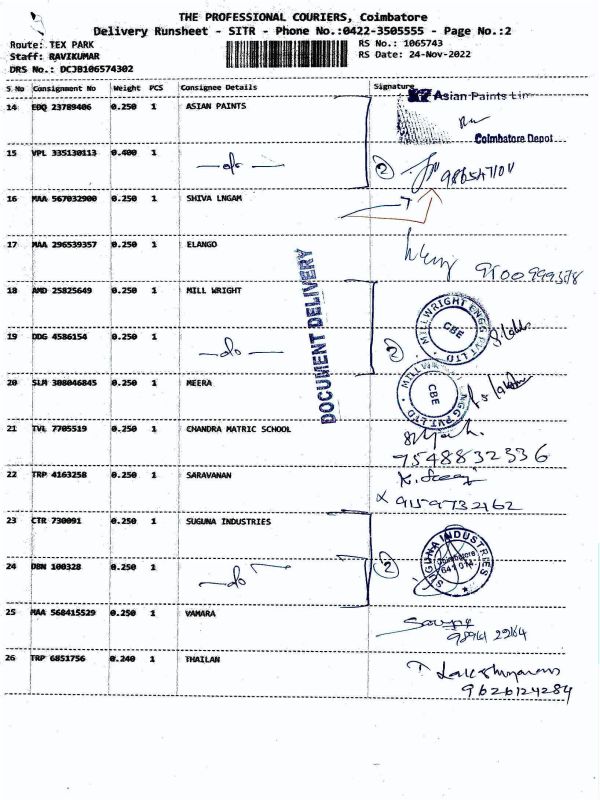 THE PROFESSIONAL COURIERS, Coimbatore
Delivery Runsheet - SITR - Phone No.:0422-3505555 - Page No.:2
Route: TEX PARK RS No.: 1065743
Staff: RAVIKUMAR RS Date: 24-Nov-2022
DRS No.: DCJB106574302
S No Consignment No Weight PCS Consignee Details Signature
14 EOQ 23789406 0.250 1 ASIAN PAINTS Asian Paints Lim
Coimbatore Depot
15 VPL 335130113 0.400 1 —do— 2
16 MAA 567032900 0.250 1 SHIVA LNGAM
17 MAA 296539357 0.250 1 ELANGO
18 AMD 25825649 0.250 1 MILL WRIGHT MILLWRIGHT ENGG PVT LTD CBE
19 DDG 4586154 0.250 1 —do— 2
DOCUMENT DELIVERY
20 SLM 308046845 0.250 1 MEERA CBE
21 TVL 7705519 0.250 1 CHANDRA MATRIC SCHOOL
9548832336
22 TRP 4163258 0.250 1 SARAVANAN
9159732162
23 CTR 730091 0.250 1 SUGUNA INDUSTRIES SUGUNA INDUSTRIES Coimbatore 641 014.
24 DBN 100328 0.250 1 —do— 2
25 MAA 568415529 0.250 1 VAMARA
26 TRP 6851756 0.240 1 THAILAN
9626124284